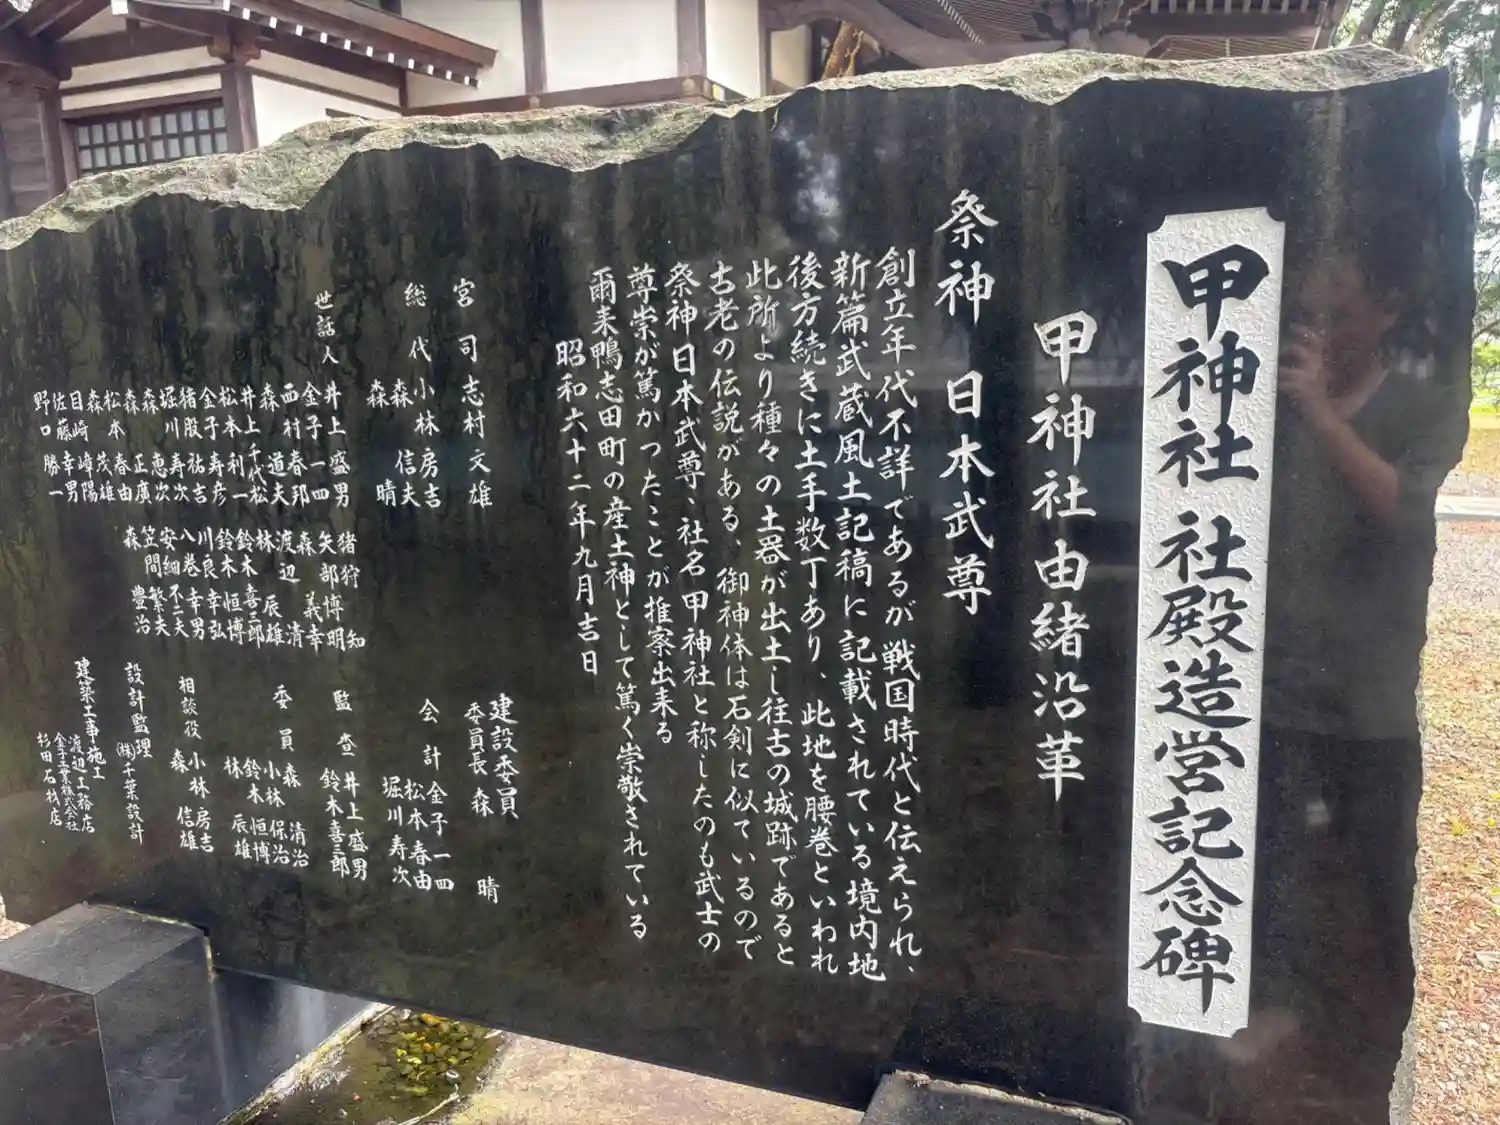 甲神社 社殿造営記念碑
甲神社由緒沿革
祭神 日本武尊
創立年代不詳であるが戦国時代と伝えられ、
新篇武蔵風土記稿に記載されている境内地
後方続きに土手数丁あり、此地を腰巻といわれ
此所より種々の土器が出土し往古の城跡であると
古老の伝説がある、御神体は石剣に似ているので
祭神日本武尊、社名甲神社と称したのも武士の
尊崇が篤かつたことが推察出来る
爾来鴨志田町の産土神として篤く崇敬されている
昭和六十二年九月吉日
宮司 志村文雄
総代 小林房吉
森 信夫
森 晴
世話人 井上盛男
金子一四
西村春邦
森 道夫
井上千代松
松本利一
金子寿彦
猪股祐吉
堀川寿次
森 恵次
森 正廣
松本春由
森 茂雄
目崎峰陽
佐藤幸男
野口勝一
猪狩 知
矢部博明
森 義幸
渡辺 清
林 辰雄
鈴木喜三郎
鈴木恒博
川良幸弘
八巻幸男
安細不二夫
笠間繁夫
森 豊治
建設委員
委員長 森 晴
会計 金子一四
松本春由
堀川寿次
監査 井上盛男
鈴木喜三郎
委員 森 清治
小林保治
鈴木恒博
林 辰雄
相談役 小林房吉
森 信雄
設計監理
㈱千葉設計
建築工事施工
渡辺工務店
金子工業株式会社
杉田石材店